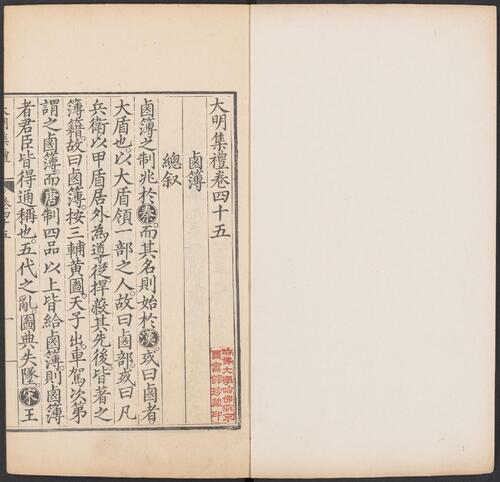 大明集禮卷四十五
鹵簿
總叙
鹵簿之制兆於秦而其名則始於漢或曰鹵者
大盾也以大盾領一部之人故曰鹵部或曰凡
兵衛以甲盾居外為導從捍蔽其先後皆著之
簿籍故曰鹵簿按三輔黃圖天子出車駕次第
謂之鹵簿而唐制四品以上皆給鹵簿則鹵簿
者君臣皆得通稱也五代之亂圖典失墜宋王
大明集禮
卷四十五
一
哈佛大學哈佛燕京
圖書館珍藏印